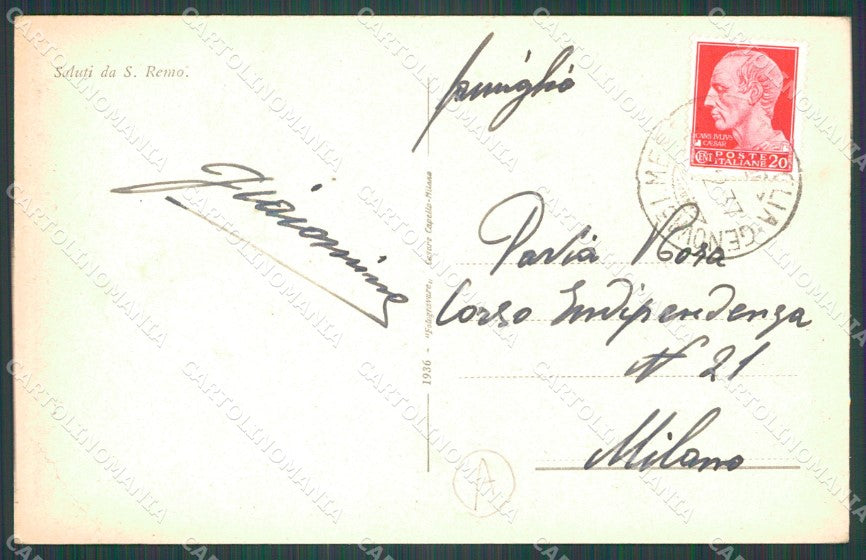 Saluti da S. Remo.
famiglia
Paolia Rosa
Corso Indipendenza
N 21
Milano
1936 - "Fotogravure" Cesare Capello - Milano
CAIVS·IVLIVS
CAESAR
POSTE
ITALIANE 20
GENOVA
A
CARTOLINOMANIA